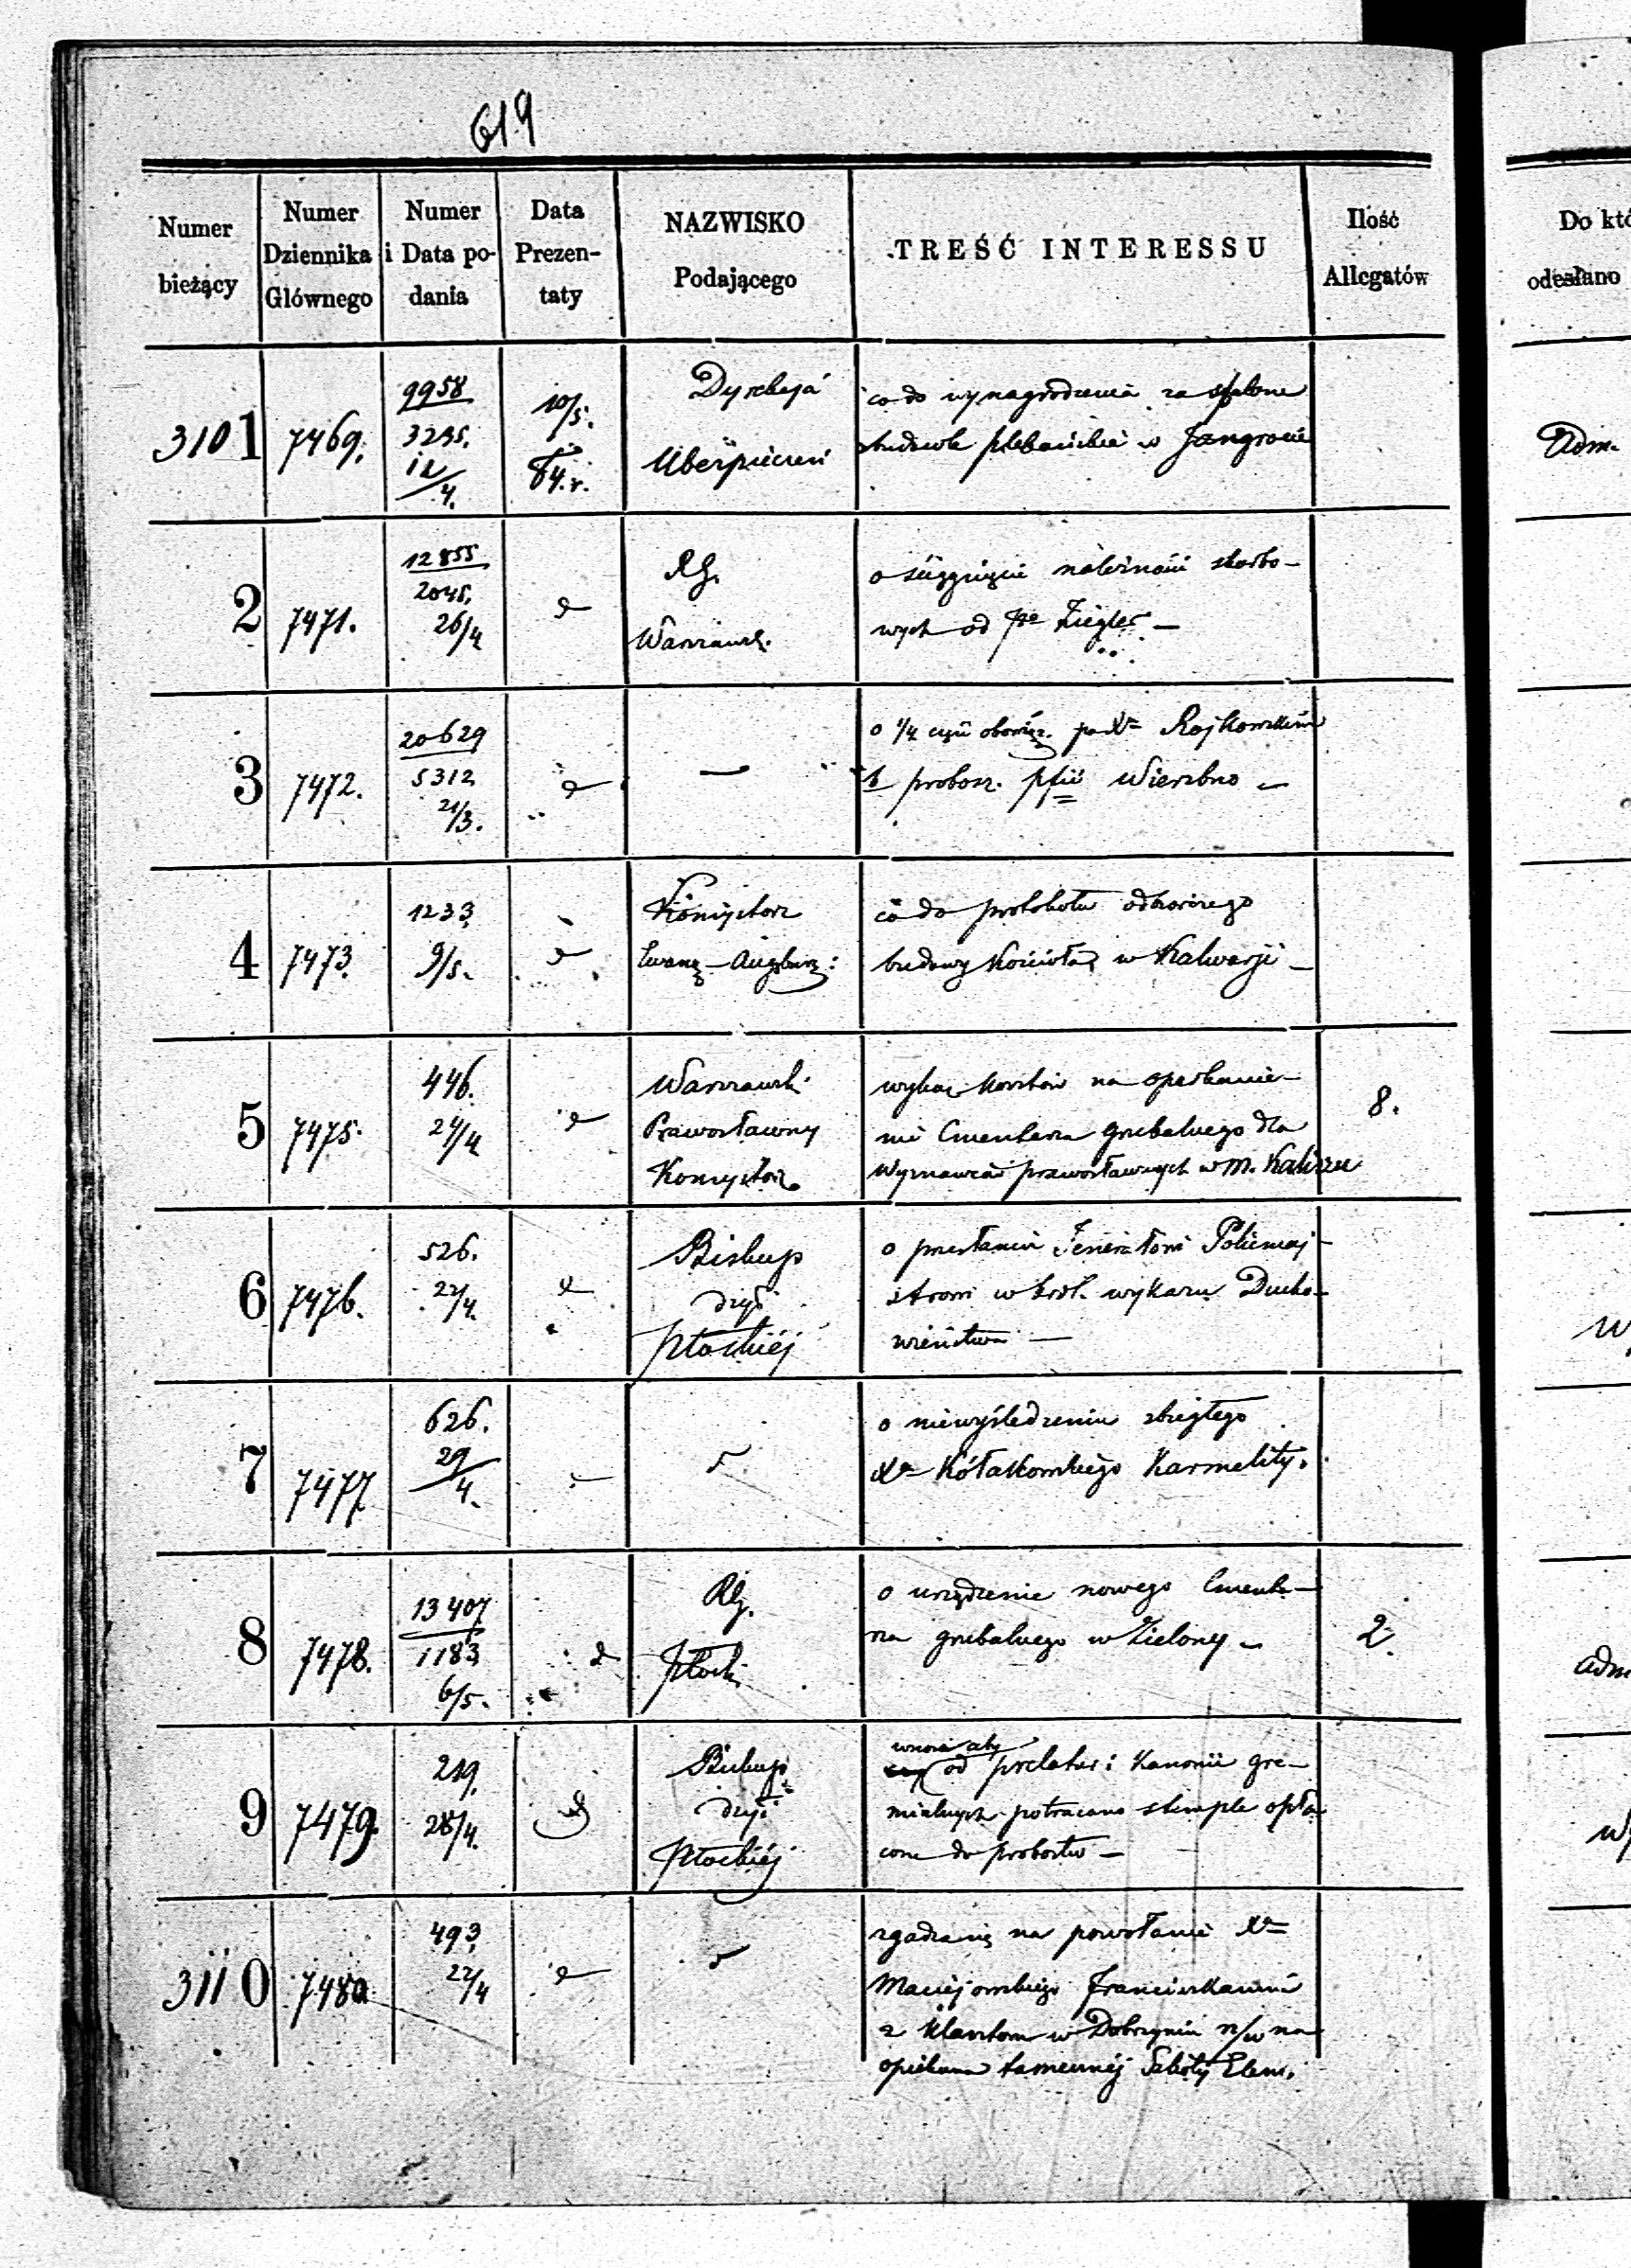 619
Numer bieżący
Numer Dziennika Głównego
Numer i Data podania
Data Prezentaty
NAZWISKO Podającego
TREŚĆ INTERESSU
Ilość Allegatów
Do któ
odesłano
3101
7469.
9958
3295.
12/4.
10/5.
64.r.
Dyrekcja
Ubezpieczeń
co do wynagrodzenia za spalone
budowle plebańskie w Jangrocie
Adm.
2
7471.
12855
2045.
26/4
d
RG.
Warszawsk.
o ściągnięcie należności skarbo-
wych od Ziegler -
3
7472.
20629
5312
21/3.
d
—
o 1/4 części obowiąz. po Xe Rojkowskim
b probosz. pfii Wierzbno -
4
7473.
1233
9/5.
d
Konsystorz
Ewang-Augsburg:
co do protokołu odbiorczego
budowy Kościoła w Kalwarji -
5
7475.
446.
24/4
d
Warszawski
Prawosławny
Konsystorz
wykaz kosztów na oparkanie-
nie Cmentarza grzebalnego dla
Wyznawców prawosławnych w m. Kaliszu
8.
6
7476.
526.
22/4.
d
Biskup
dyec
Płockiej
o przesłaniu Jenerałowi Policmaj-
strowi w król. wykazu Ducho-
wieństwa —
7
7477
626.
29/4.
o niewyśledzeniu zbiegłego
Xa Kołakowskiego Karmelity.
8
7478.
13407
1183
6/5.
d
RG.
Płock.
o urządzenie nowego Cmenta-
rza grzebalnego w Zielony -
2
adm
9
7479.
219.
28/4.
d
Biskup
dyec
Płockiej
wnosi aby
od prelatów i Kanonii gre-
mialnych potrącano stemple opła
cone do probostw -
3110
7480
493
22/4
d
zgadza się na powołanie Xa
Maciejowskiego Franciszkanina
z Klasztoru w Dobrzyniu n/w na
opiekuna tamecznej Szkoły Elem.